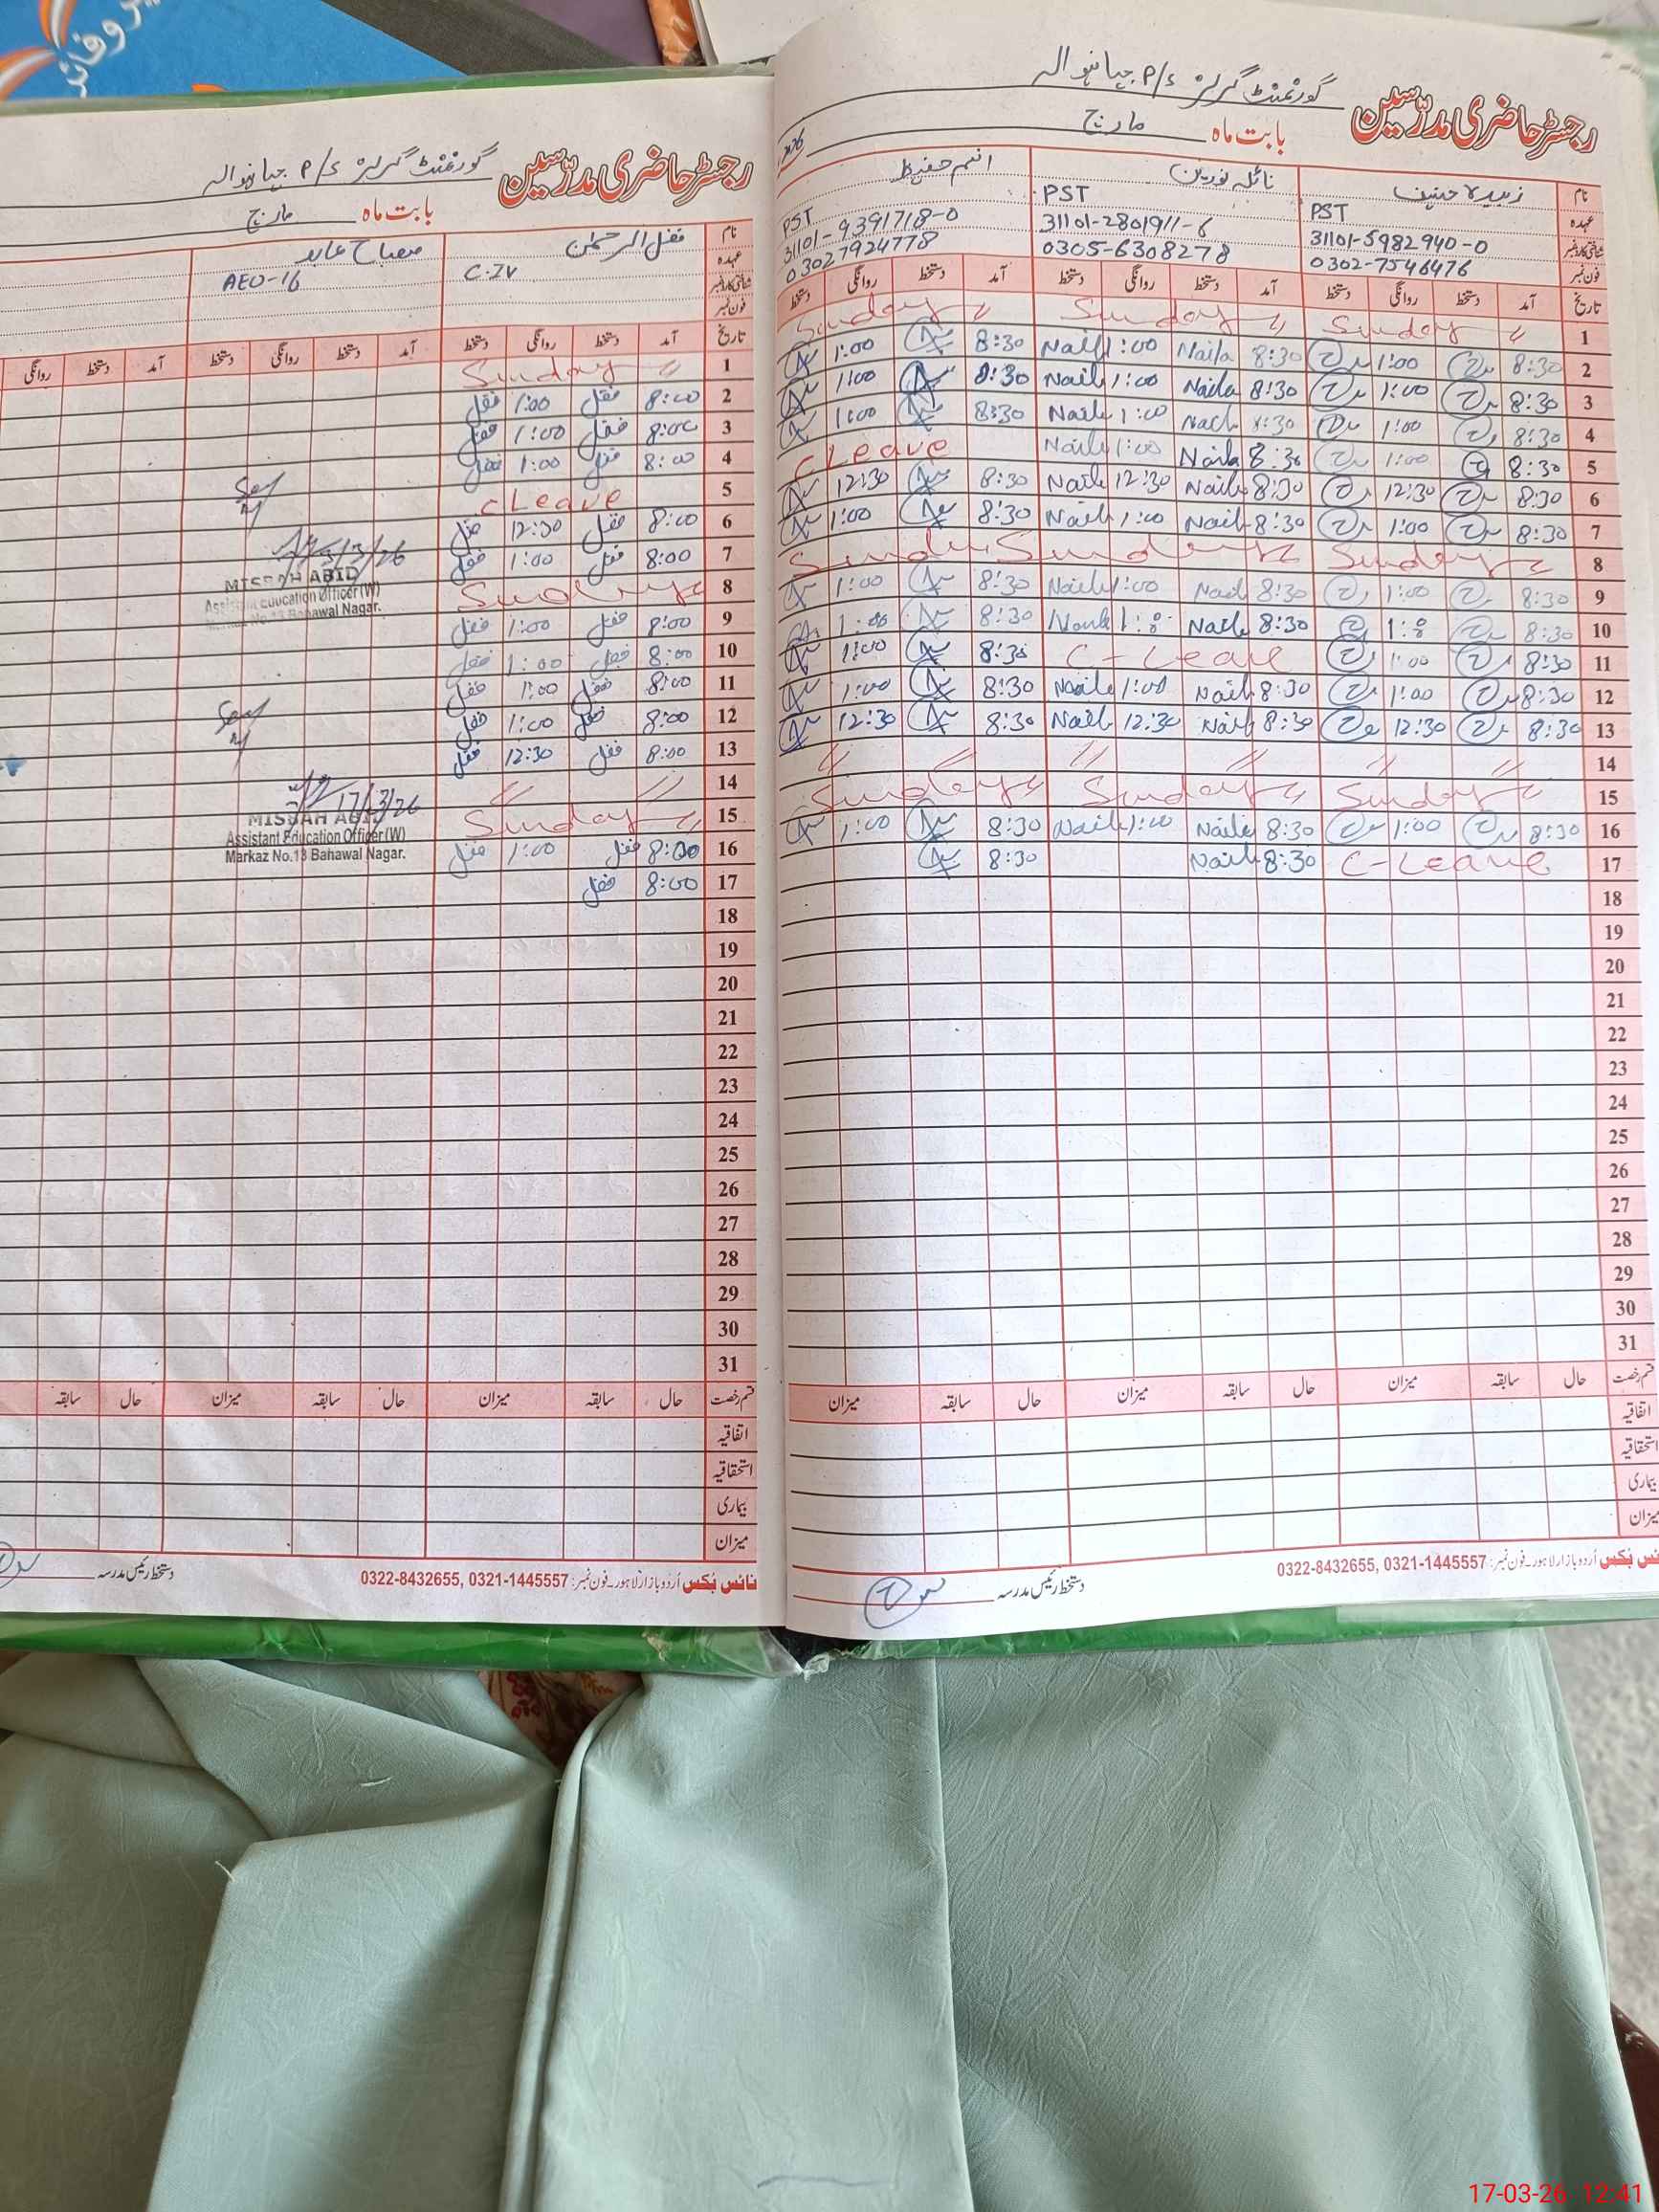 رجسٹر حاضری مدرّسین گورنمنٹ گرلز P/S جیانوالہ
بابت ماہ مارچ
نام زبیدہ حنیف نائلہ نورین انعم حفیظ
عہدہ PST PST PST
شناختی کارڈ نمبر 31101-5982940-0 31101-2801911-6 31101-9391718-0
فون نمبر 0302-7546476 0305-6308278 03027924778
تاریخ آمد دستخط روانگی دستخط آمد دستخط روانگی دستخط آمد دستخط روانگی دستخط
1 Sunday Sunday Sunday
2 8:30 1:00 8:30 Naila 1:00 Naila 8:30 1:00
3 8:30 1:00 8:30 Naila 1:00 Naila 8:30 1:00
4 8:30 1:00 8:30 1:00 Naila 8:30 1:00
5 8:30 1:00 8:30 Naila 1:00 Naila C Leave
6 8:30 12:30 8:30 Naila 12:30 Naila 8:30 12:30
7 8:30 1:00 8:30 Naila 1:00 Naila 8:30 1:00
8 Sunday Sunday Sunday
9 8:30 1:00 8:30 Naila 1:00 Naila 8:30 1:00
10 8:30 1:00 8:30 Naila 1:00 Naila 8:30 1:00
11 8:30 1:00 C-Leave 8:30 1:00
12 8:30 1:00 8:30 Naila 1:00 Naila 8:30 1:00
13 8:30 12:30 8:30 Naila 12:30 Naila 8:30 12:30
14 〃 〃 〃 〃 〃 〃
15 Sunday Sunday Sunday
16 8:30 1:00 8:30 Naila 1:00 Naila 8:30 1:00
17 C-Leave 8:30 Naila 8:30
18
19
20
21
22
23
24
25
26
27
28
29
30
31
قسم رخصت حال سابقہ میزان حال سابقہ میزان حال سابقہ میزان
اتفاقیہ
استحقاقیہ
بیماری
میزان
نائس بُکس اُردو بازار لاہور۔فون نمبر: 0322-8432655, 0321-1445557 دستخط رئیس مدرسہ
رجسٹر حاضری مدرّسین گورنمنٹ گرلز P/S جیانوالہ
بابت ماہ مارچ
نام فضل الرحمٰن مصباح عابد
عہدہ C.IV AEO-16
شناختی کارڈ نمبر
فون نمبر
تاریخ آمد دستخط روانگی دستخط آمد دستخط روانگی دستخط آمد دستخط روانگی
1 Sunday
2 8:00 فضل 1:00 فضل
3 8:00 فضل 1:00 فضل
4 8:00 فضل 1:00 فضل
5 C Leave
6 8:00 فضل 12:30 فضل
7 8:00 فضل 1:00 فضل
8 Sunday
9 8:00 فضل 1:00 فضل
10 8:00 فضل 1:00 فضل
11 8:00 فضل 1:00 فضل
12 8:00 فضل 1:00 فضل
13 8:00 فضل 12:30 فضل
14 〃 〃
15 Sunday
16 8:00 فضل 1:00 فضل
17 8:00 فضل
18
19
20
21
22
23
24
25
26
27
28
29
30
31
MISBAH ABID
Assistant Education Officer (W)
Markaz No.13 Bahawal Nagar.
17/3/26
MISBAH ABID
Assistant Education Officer (W)
Markaz No.13 Bahawal Nagar.
قسم رخصت حال سابقہ میزان حال سابقہ میزان حال سابقہ
اتفاقیہ
استحقاقیہ
بیماری
میزان
نائس بُکس اُردو بازار لاہور۔فون نمبر: 0322-8432655, 0321-1445557 دستخط رئیس مدرسہ
17-03-26 12:41